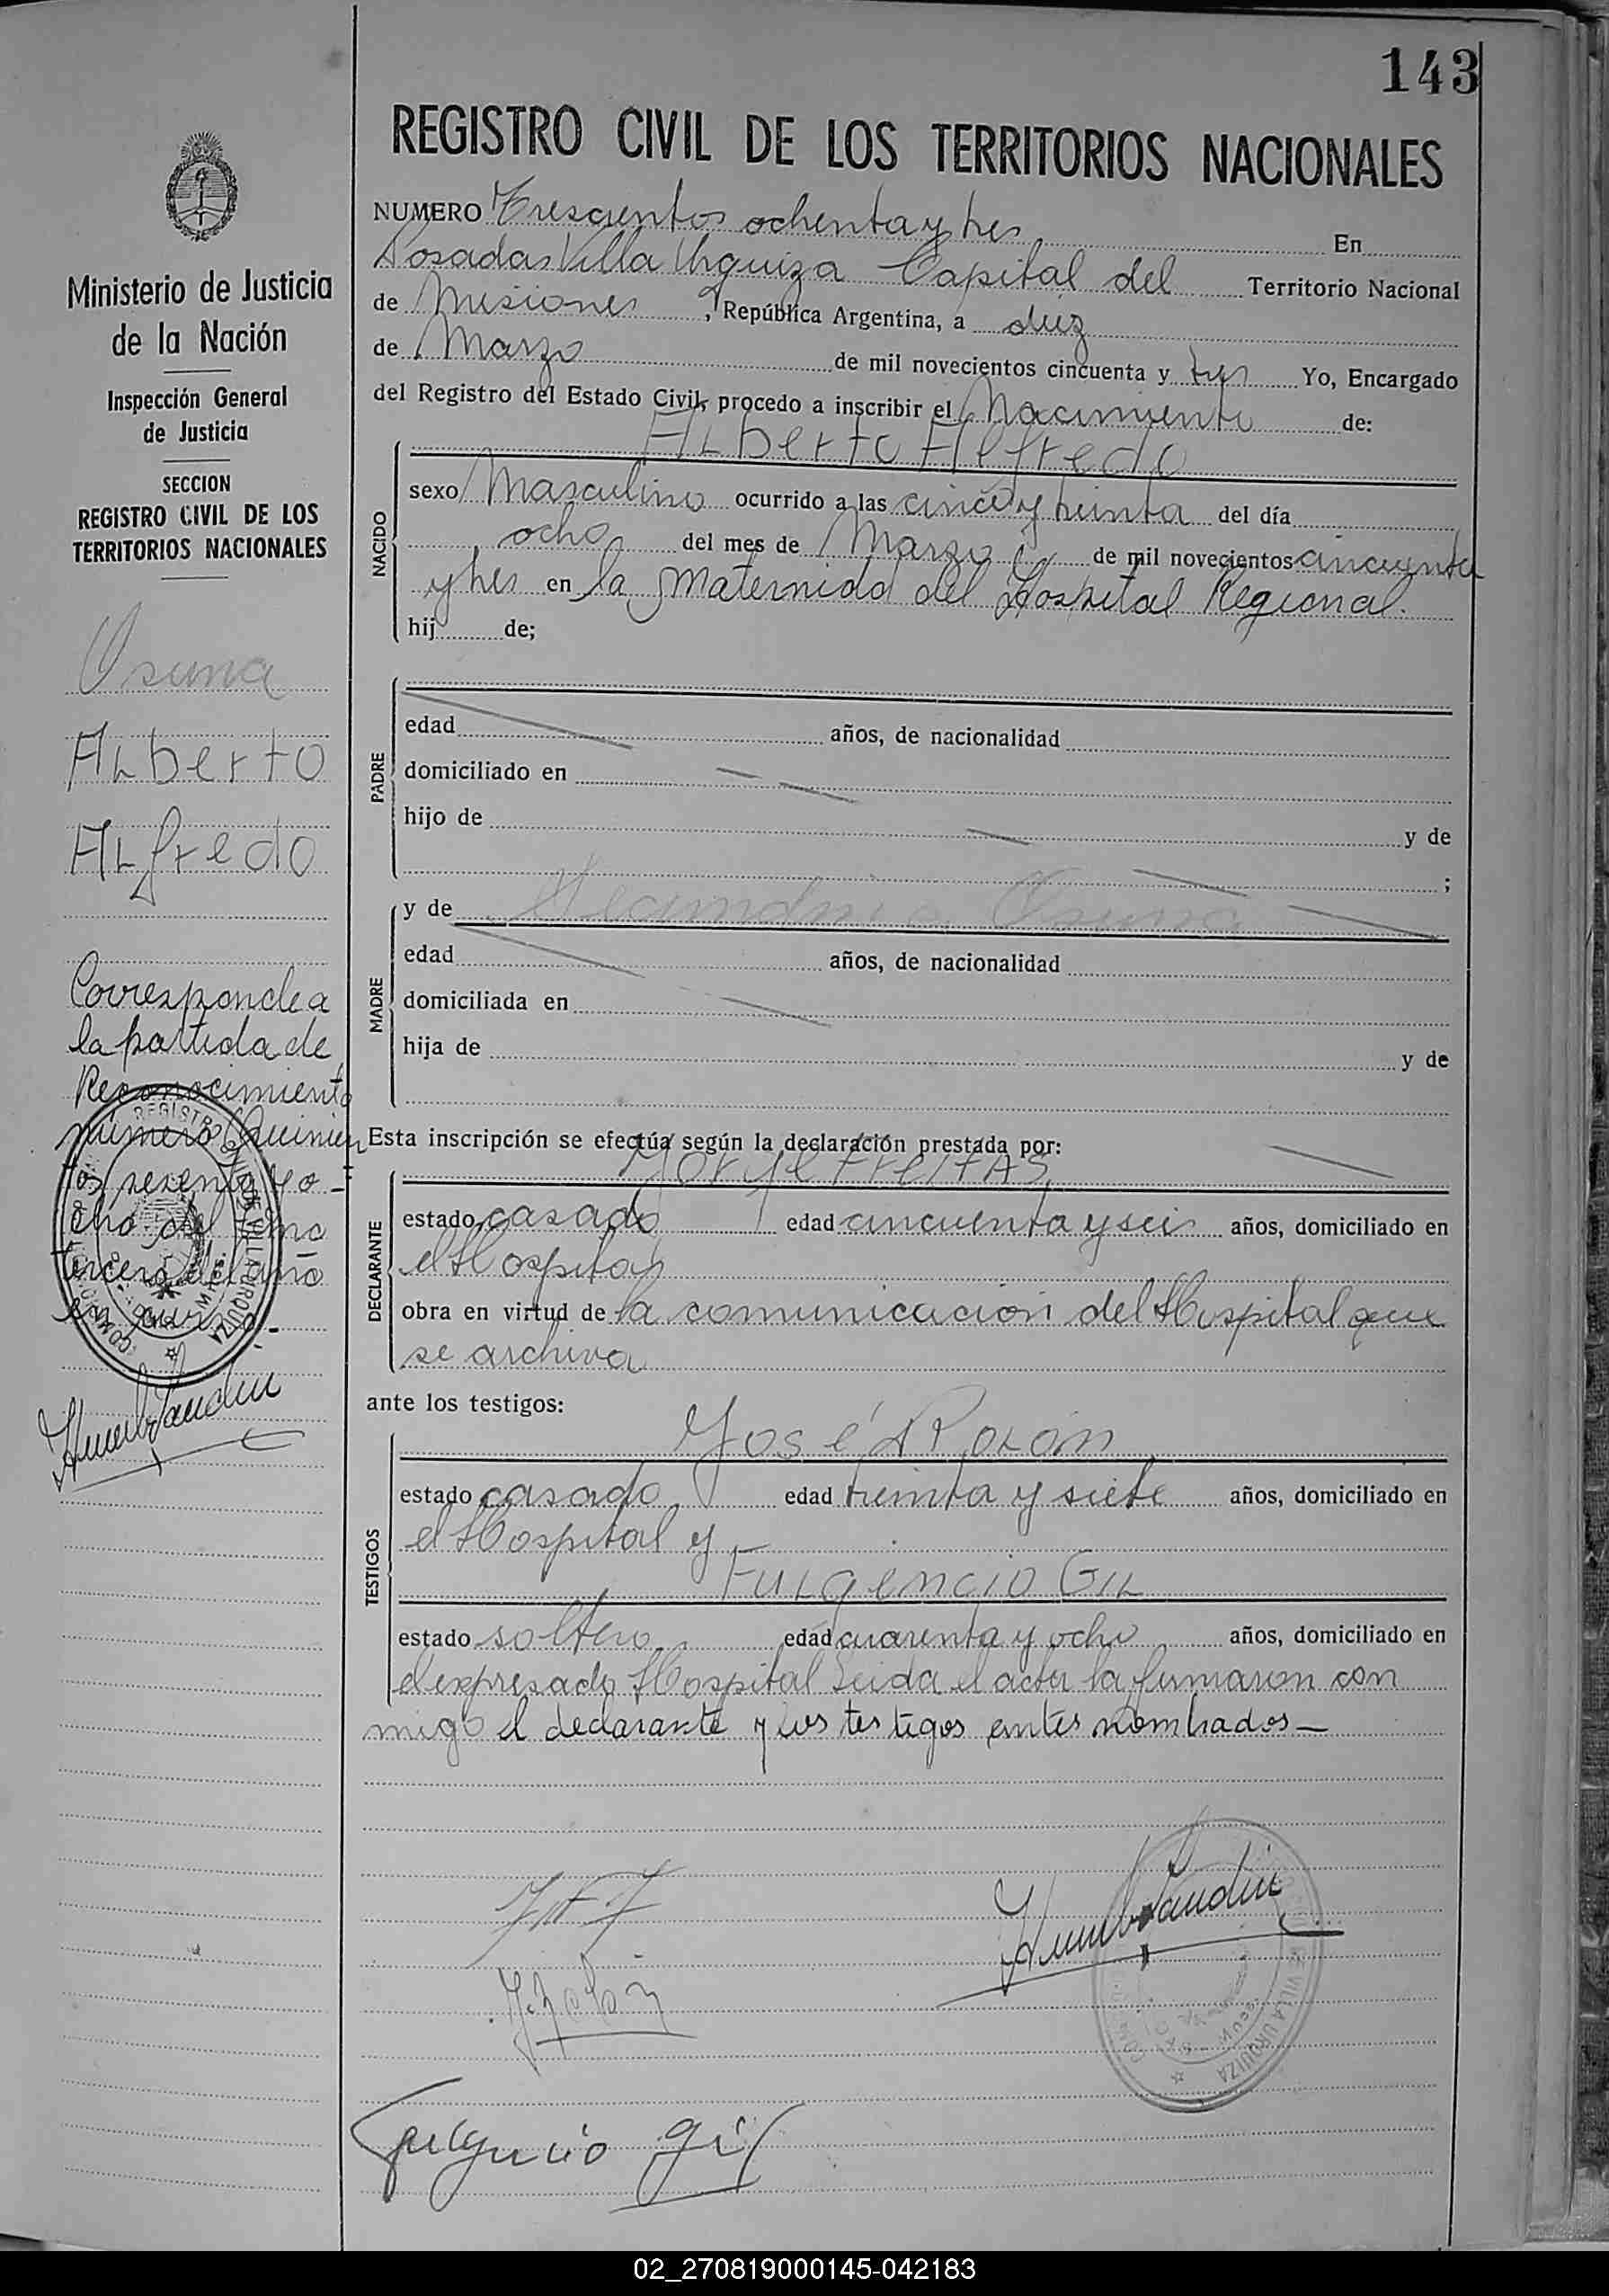 143
REGISTRO CIVIL DE LOS TERRITORIOS NACIONALES
NUMERO Trescientos ochenta y tres En
Posadas Villa Urquiza Capital del Territorio Nacional
de Misiones, República Argentina, a diez
de Marzo de mil novecientos cincuenta y tres Yo, Encargado
del Registro del Estado Civil, procedo a inscribir el Nacimiento de:
Alberto Alfredo
NACIDO
sexo Masculino ocurrido a las cinco y treinta del día
ocho del mes de Marzo de mil novecientos cincuenta
y tres en la Maternidad del Hospital Regional.
hij de;
PADRE
edad años, de nacionalidad
domiciliado en
hijo de y de
;
MADRE
y de Secundina Osuna
edad años, de nacionalidad
domiciliada en
hija de y de
Esta inscripción se efectúa según la declaración prestada por:
DECLARANTE
Jorge Freitas
estado casado edad cincuenta y seis años, domiciliado en
el Hospital
obra en virtud de la comunicación del Hospital que
se archiva
ante los testigos:
TESTIGOS
José A Rolón
estado casado edad treinta y siete años, domiciliado en
el Hospital y
Fulgencio Gil
estado soltero edad cuarenta y ocho años, domiciliado en
el expresado Hospital Leida el acta la firmaron con
migo el declarante y los testigos antes nombrados—
Fulgencio Gil
Ministerio de Justicia
de la Nación
Inspección General
de Justicia
SECCION
REGISTRO CIVIL DE LOS
TERRITORIOS NACIONALES
Osuna
Alberto
Alfredo
Corresponde a
la partida de
Reconocimiento
número Quinien
tos sesenta y o-
cho del tomo
tercero del año
VILLA URQUIZA
02_270819000145-042183